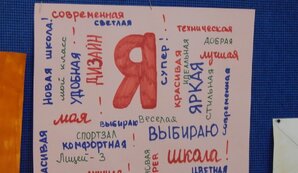 современная
светлая
Новая школа!
мой класс
удобная
ДИЗАЙН
Я
супер!
техническая
добрая
лучшая
красивая
идеальная
ЯРКАЯ
стильная
современная
моя
выбираю
веселая
спортзал
выбираю
комфортная
Лицей-3
школа!
цветная